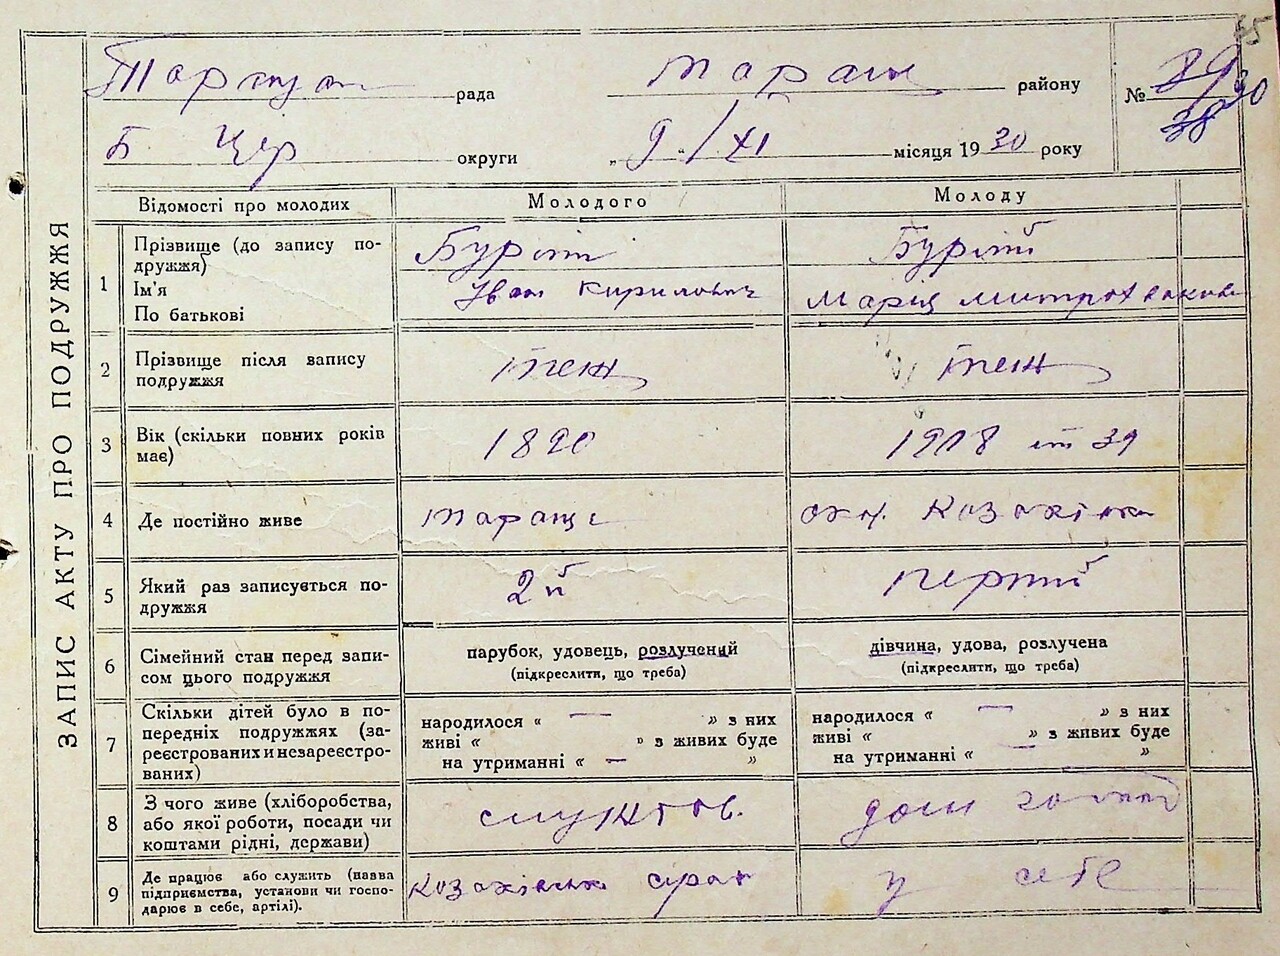 65
рада
Таращ
району
№ 89
30
38
Б Цер
округи
„ 9/XI
місяця 1930 року
ЗАПИС АКТУ ПРО ПОДРУЖЖЯ
Відомості про молодих
Молодого
Молоду
1
Прізвище (до запису по-
дружжя)
Ім'я
По батькові
Іван Кирилович
Марія
2
Прізвище після запису
подружжя
теж
теж
3
Вік (скільки повних років
має)
1890
1908
4
Де постійно живе
Тараща
5
Який раз записується по-
дружжя
2й
перший
6
Сімейний стан перед запи-
сом цього подружжя
парубок, удовець, розлучений
(підкреслити, що треба)
дівчина, удова, розлучена
(підкреслити, що треба)
7
Скільки дітей було в по-
передніх подружжях (за-
реєстрованих и незареєстро-
ваних)
народилося « — » з них
живі « » з живих буде
на утриманні « — »
народилося « — » з них
живі « — » з живих буде
на утриманні « »
8
З чого живе (хліборобства,
або якої роботи, посади чи
коштами рідні, держави)
службов.
дом
9
Де працює або служить (назва
підприємства, установи чи госпо-
дарює в себе, артілі).
у себе